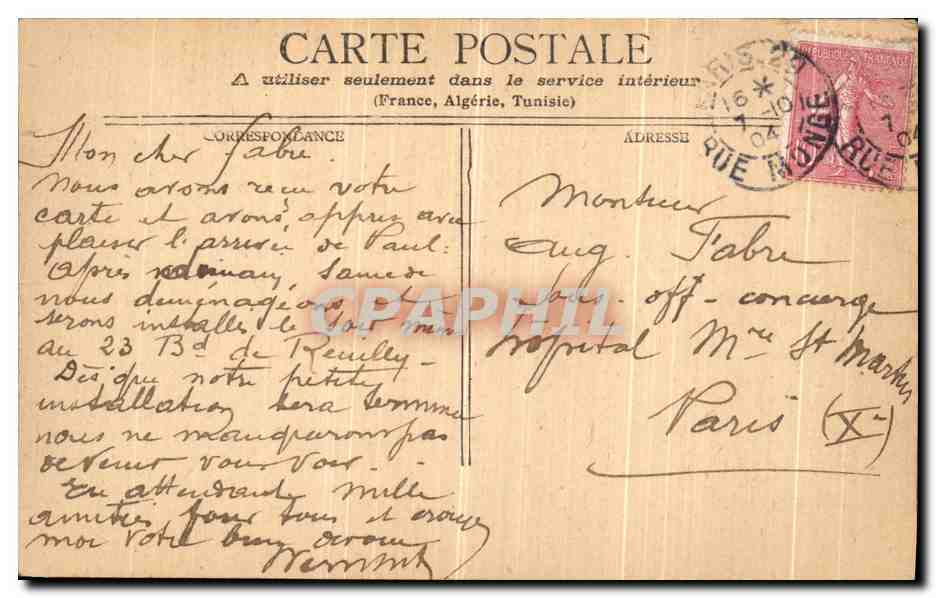 CARTE POSTALE
A utiliser seulement dans le service intérieur
(France, Algérie, Tunisie)
CORRESPONDANCE
ADRESSE
RÉPUBLIQUE FRANÇAISE
PARIS
16 * 10
7 04
RUE MONGE
RUE
7 04
Mon cher Fabre.
nous avons reçu votre
carte et avons appris avec
plaisir l'arrivée de Paul.
Après samedi
nous déménageons et
serons installés le soir même
au 23 Bd de Reuilly -
Dès que notre petite
installation sera terminée
nous ne manquerons pas
de venir vous voir.
En attendant mille
amitiés pour tous et croyez
moi votre bien
Monsieur
Aug. Fabre
Sous-off-concierge
hôpital Mre St Martin
Paris (Xe)
CPAPHIL